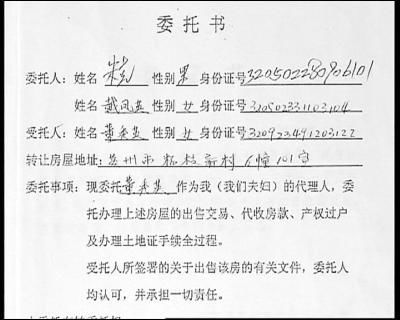 委托书
委托人：姓名 性别 男 身份证号
姓名 戴凤英 性别 女 身份证号 320502331102104
受托人：姓名 董秀英 性别 女 身份证号 320923491203122
转让房屋地址：苏州市 新村 幢101室
委托事项：现委托董秀英作为我（我们夫妇）的代理人，委
托办理上述房屋的出售交易、代收房款、产权过户
及办理土地证手续全过程。
受托人所签署的关于出售该房的有关文件，委托人
均认可，并承担一切责任。